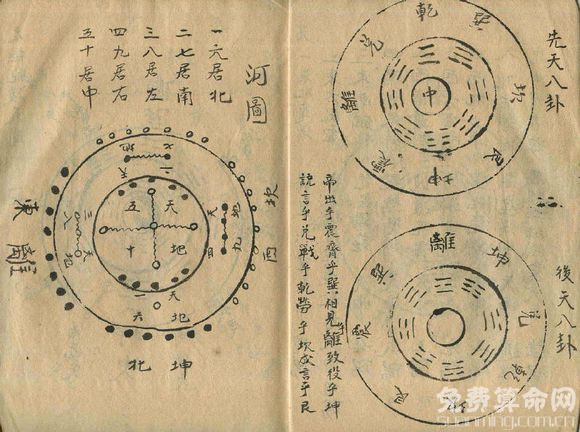 先天八卦
乾
兌
離
坎
艮
坤
震
中
後天八卦
離
坤
兌
乾
艮
震
巽
帝出乎震齊乎巽相見乎離致役乎坤
說言乎兌戰乎乾勞乎坎成言乎艮
河圖
一六居北
二七居南
三八居左
四九居右
五十居中
二
七
地
天
天地
五十
三
八
天
地
地
九
天一
地六
坎
西
東
離
南
坤
北
免费算命网
suanming.com.cn